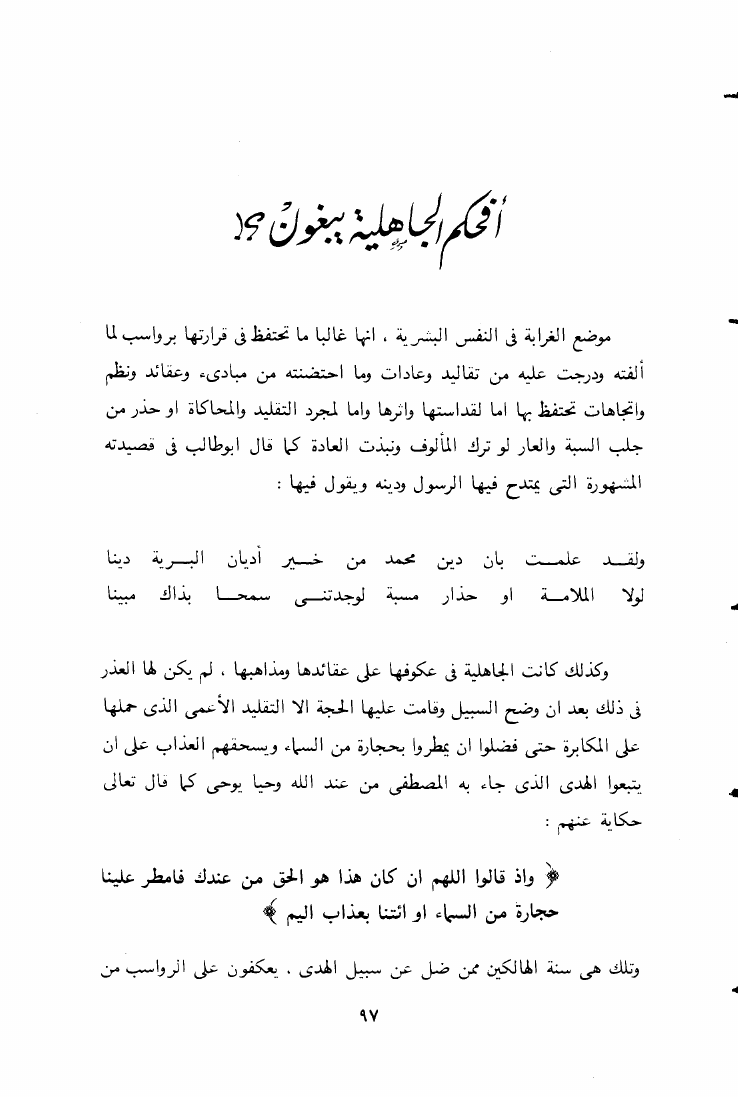 أفحكم الجاهلية يبغون ؟!
موضع الغرابة فى النفس البشرية ، انها غالبا ما تحتفظ فى قرارتها برواسب لما
ألفته ودرجت عليه من تقاليد وعادات وما احتضنته من مبادىء وعقائد ونظم
واتجاهات تحتفظ بها اما لقداستها واثرها واما لمجرد التقليد والمحاكاة او حذر من
جلب السبة والعار لو ترك المألوف ونبذت العادة كما قال ابوطالب فى قصيدته
المشهورة التى يمتدح فيها الرسول ودينه ويقول فيها :
ولقـــد علمـــت بان دين محمد من خـــير أديان البـــرية دينا
لولا الملامـــة او حذار مسبة لوجدتنـــى سمحـــا بذاك مبينا
وكذلك كانت الجاهلية فى عكوفها على عقائدها ومذاهبها ، لم يكن لها العذر
فى ذلك بعد ان وضح السبيل وقامت عليها الحجة الا التقليد الأعمى الذى حملها
على المكابرة حتى فضلوا ان يمطروا بحجارة من السماء ويسحقهم العذاب على ان
يتبعوا الهدى الذى جاء به المصطفى من عند الله وحيا يوحى كما قال تعالى
حكاية عنهم :
﴿ واذ قالوا اللهم ان كان هذا هو الحق من عندك فامطر علينا
حجارة من السماء او ائتنا بعذاب اليم ﴾
وتلك هى سنة الهالكين ممن ضل عن سبيل الهدى . يعكفون على الرواسب من
٩٧